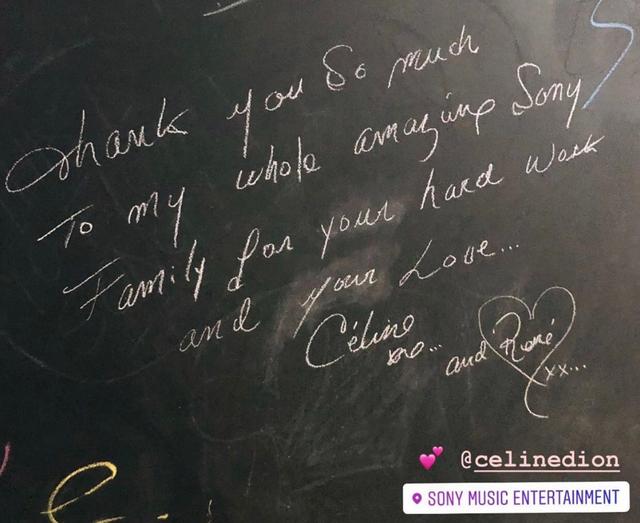 Thank you So much
To my whole amazing Sony
Family for your hard work
and your Love...
Céline
xxo... and René
xx...
@celinedion
SONY MUSIC ENTERTAINMENT